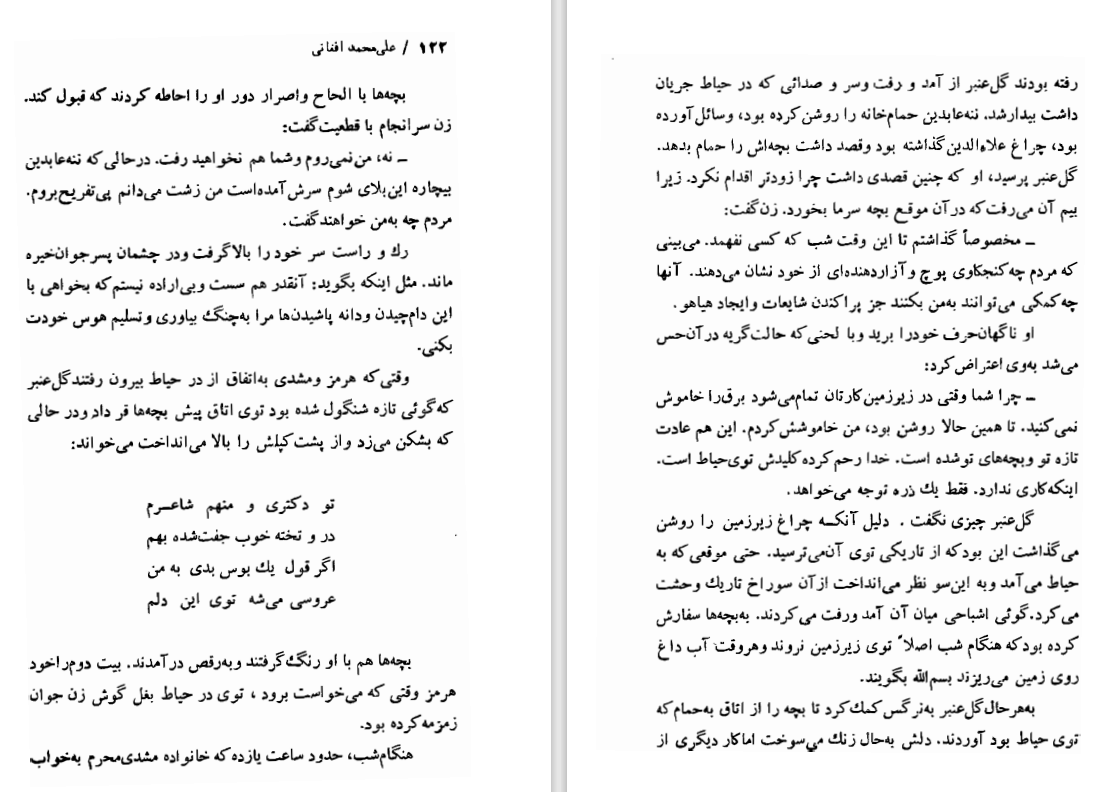 ۱۲۲ / علی‌محمد افغانی
بچه‌ها با الحاح واصرار دور او را احاطه کردند که قبول کند.
زن سرانجام با قطعیت‌گفت:
ــ نه، من‌نمی‌روم وشما هم نخواهید رفت. درحالی که ننه‌عابدین
بیچاره این‌بلای شوم سرش‌آمده‌است من زشت می‌دانم پی‌تفریح‌بروم.
مردم چه به‌من خواهندگفت.
رك و راست سر خود را بالاگرفت ودر چشمان پسرجوان‌خیره
ماند. مثل اینکه بگوید: آنقدر هم سست وبی‌اراده نیستم‌که بخواهی با
این دام‌چیدن ودانه پاشیدن‌ها مرا به‌چنگ بیاوری وتسلیم هوس خودت
بکنی.
وقتی‌که هرمز ومشدی به‌اتفاق از در حیاط بیرون رفتندگل‌عنبر
که‌گوئی تازه شنگول شده بود توی اتاق پیش بچه‌ها قر داد ودر حالی
که بشکن می‌زد واز پشت‌کپلش را بالا می‌انداخت می‌خواند:
تو دکتری و منهم شاعــرم
در و تخته خوب جفت‌شده بهم
اگر قول یك بوس بدی به من
عروسی می‌شه توی این دلم
بچه‌ها هم با او رنگ‌گرفتند وبه‌رقص درآمدند. بیت دوم‌راخود
هرمز وقتی که می‌خواست برود ، توی در حیاط بغل گوش زن جوان
زمزمه‌کرده بود.
هنگام‌شب، حدود ساعت یازده‌که خانواده مشدی‌محرم به‌خواب
رفته بودند گل‌عنبر از آمد و رفت وسر و صدائی که در حیاط جریان
داشت بیدارشد. ننه‌عابدین حمام‌خانه را روشن‌کرده بود، وسائل‌آورده
بود، چراغ علاءالدین‌گذاشته بود وقصد داشت بچه‌اش را حمام بدهد.
گل‌عنبر پرسید، او که چنین قصدی داشت چرا زودتر اقدام نکرد. زیرا
بیم آن می‌رفت‌که درآن موقع بچه سرما بخورد. زن‌گفت:
ــ مخصوصاً گذاشتم تا این وقت شب که کسی نفهمد. می‌بینی
که مردم چه‌کنجکاوی پوچ وآزاردهنده‌ای از خود نشان می‌دهند. آنها
چه‌کمکی می‌توانند به‌من بکنند جز پراکندن شایعات وایجاد هیاهو .
او ناگهان‌حرف خودرا برید وبا لحنی‌که حالت‌گریه درآن‌حس
می‌شد به‌وی اعتراض‌کرد:
ــ چرا شما وقتی در زیرزمین‌کارتان تمام‌می‌شود برق‌را خاموش
نمی‌کنید. تا همین حالا روشن بود، من خاموشش‌کردم. این هم عادت
تازه تو وبچه‌های توشده است. خدا رحم‌کرده‌کلیدش توی‌حیاط است.
اینکه‌کاری ندارد. فقط یك ذره توجه می‌خواهد.
گل‌عنبر چیزی نگفت . دلیل آنکــه چراغ زیرزمین را روشن
می‌گذاشت این بودکه از تاریکی توی آن‌می‌ترسید. حتی موقعی‌که به
حیاط می‌آمد وبه این‌سو نظر می‌انداخت ازآن سوراخ تاریك وحشت
می‌کرد.گوئی اشباحی میان آن آمد ورفت می‌کردند. به‌بچه‌ها سفارش
کرده بودکه هنگام شب اصلاً توی زیرزمین نروند وهروقت آب داغ
روی زمین می‌ریزند بسم‌الله بگویند.
به‌هرحال‌گل‌عنبر به‌نرگس کمك‌کرد تا بچه را از اتاق به‌حمام‌که
توی حیاط بود آوردند. دلش به‌حال زنك می‌سوخت اماکار دیگری از